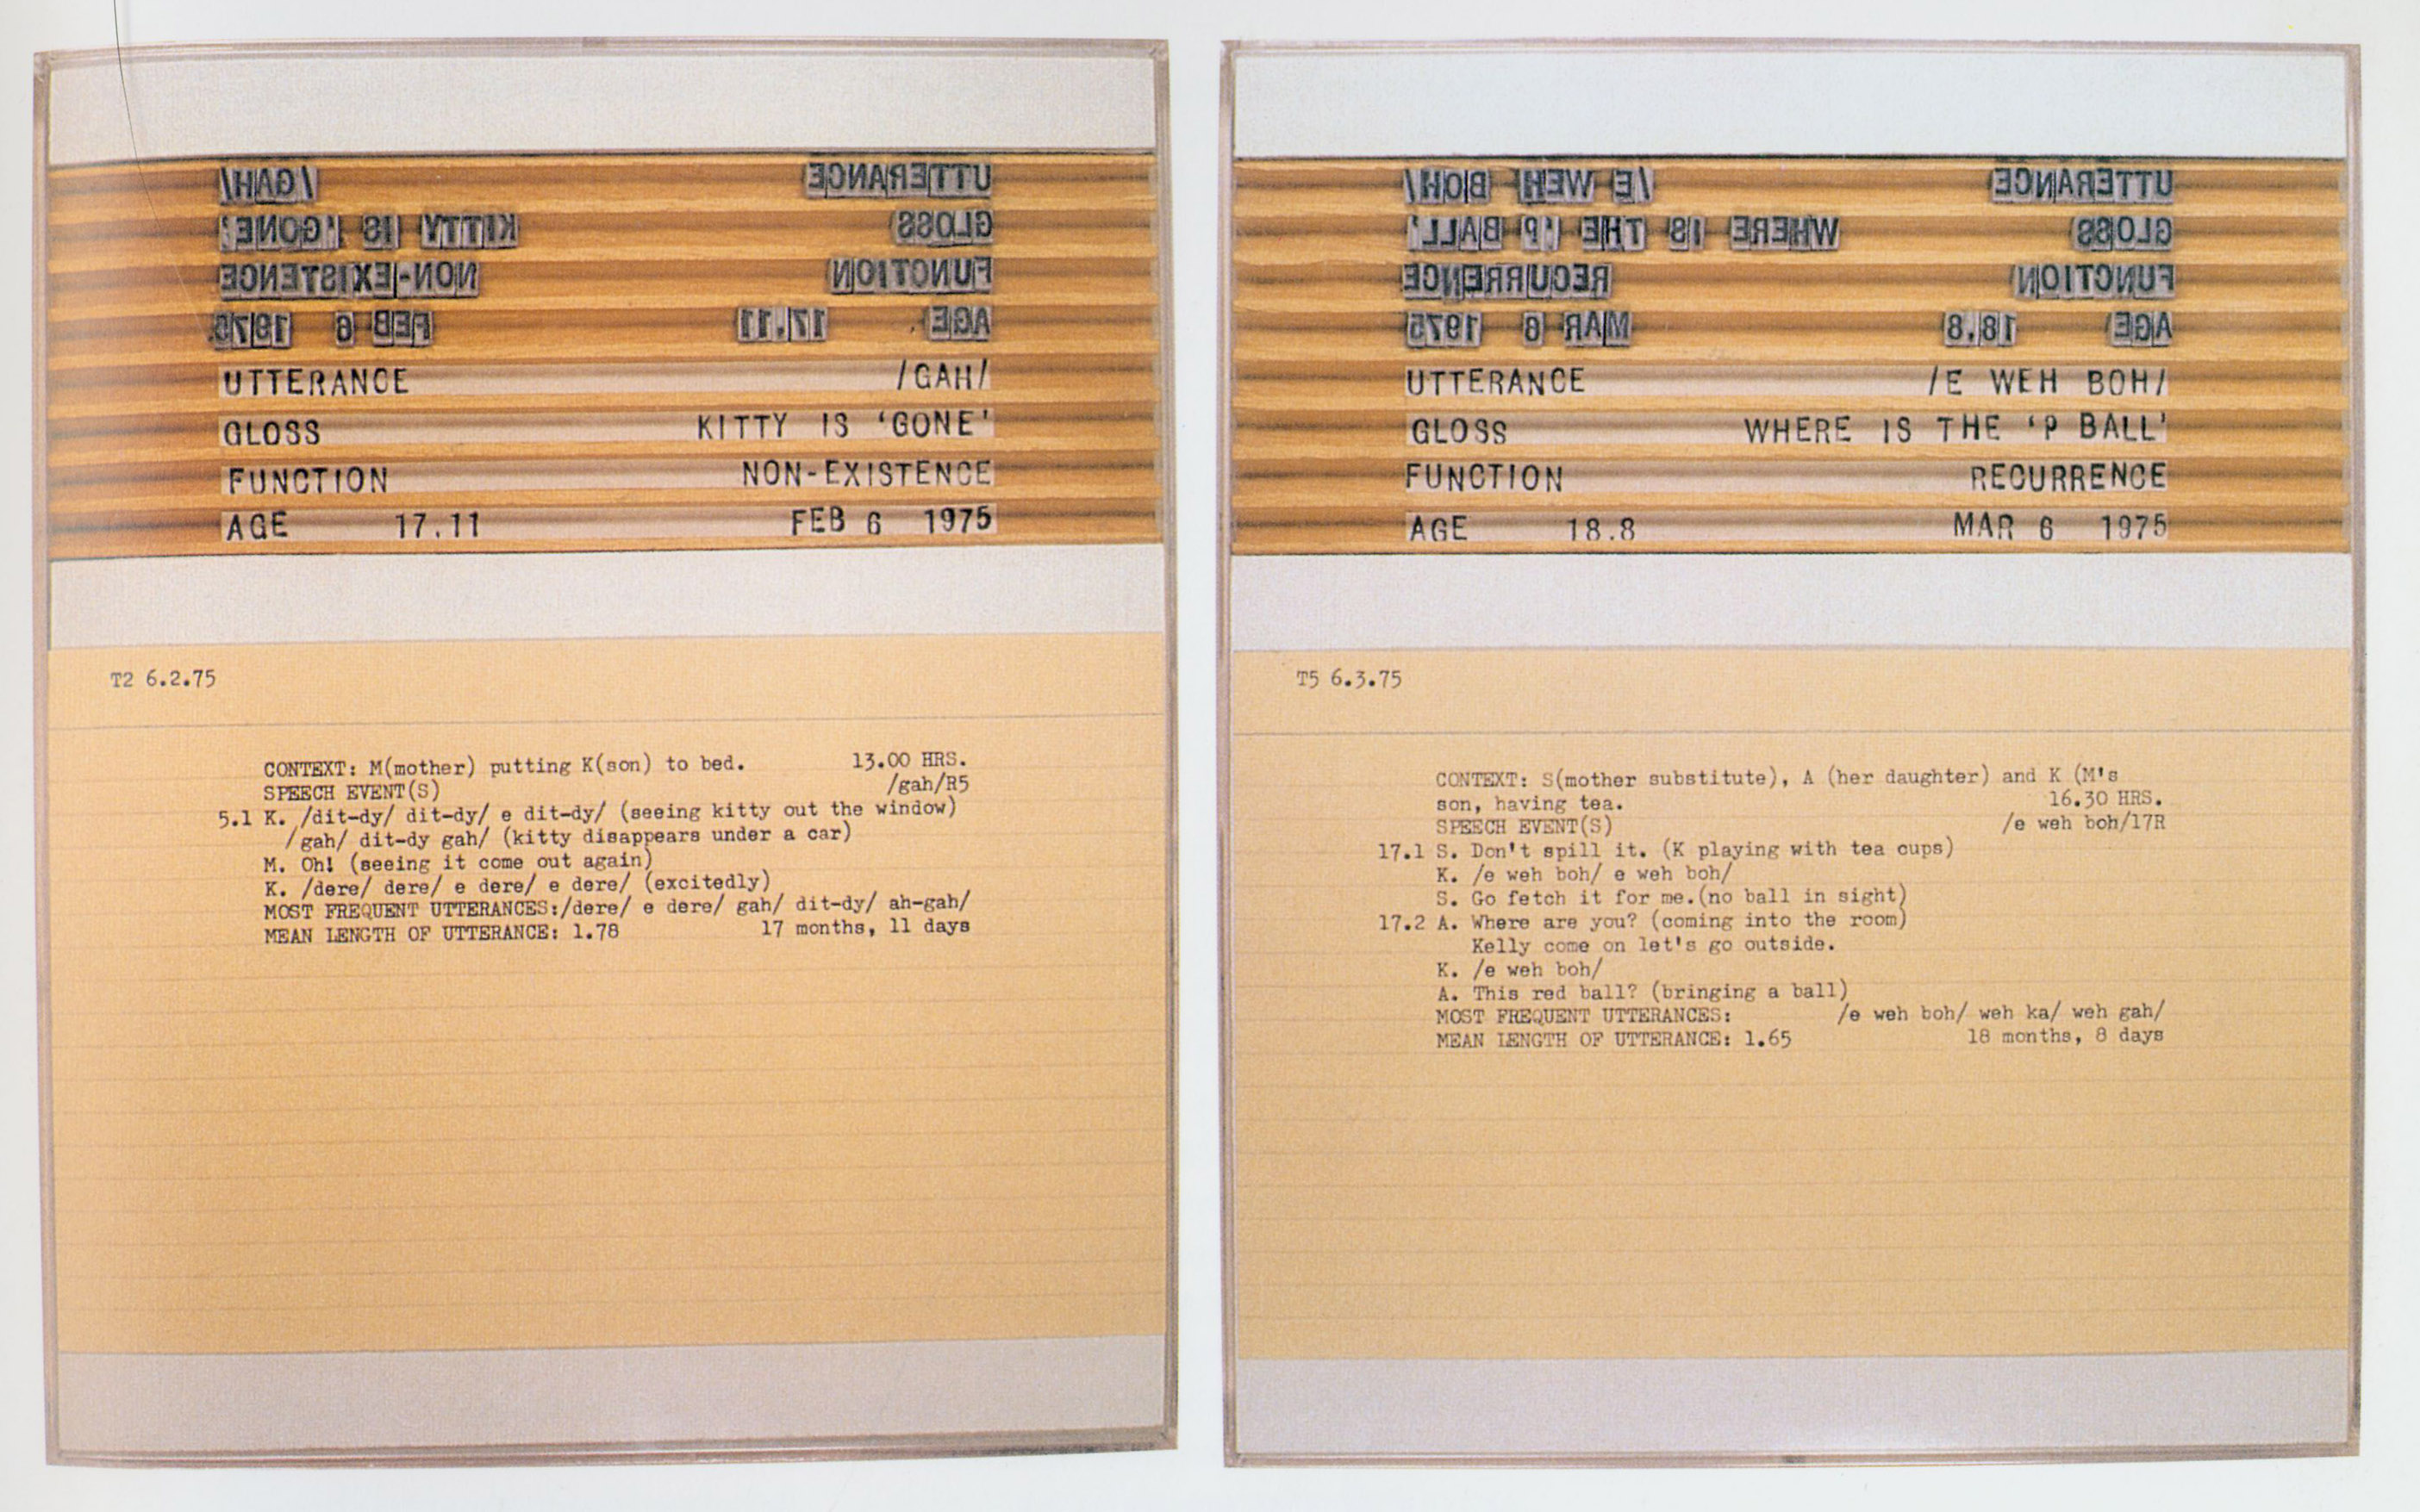 UTTERANCE /GAH/
GLOSS KITTY IS 'GONE'
FUNCTION NON-EXISTENCE
AGE 17.11 FEB 6 1975
UTTERANCE /GAH/
GLOSS KITTY IS 'GONE'
FUNCTION NON-EXISTENCE
AGE 17.11 FEB 6 1975
T2 6.2.75
CONTEXT: M(mother) putting K(son) to bed. 13.00 HRS.
SPEECH EVENT(S) /gah/R5
5.1 K. /dit-dy/ dit-dy/ e dit-dy/ (seeing kitty out the window)
/gah/ dit-dy gah/ (kitty disappears under a car)
M. Oh! (seeing it come out again)
K. /dere/ dere/ e dere/ e dere/ (excitedly)
MOST FREQUENT UTTERANCES:/dere/ e dere/ gah/ dit-dy/ ah-gah/
MEAN LENGTH OF UTTERANCE: 1.78 17 months, 11 days
UTTERANCE /E WEH BOH/
GLOSS WHERE IS THE 'P BALL'
FUNCTION RECURRENCE
AGE 18.8 MAR 6 1975
UTTERANCE /E WEH BOH/
GLOSS WHERE IS THE 'P BALL'
FUNCTION RECURRENCE
AGE 18.8 MAR 6 1975
T5 6.3.75
CONTEXT: S(mother substitute), A (her daughter) and K (M's
son, having tea. 16.30 HRS.
SPEECH EVENT(S) /e weh boh/17R
17.1 S. Don't spill it. (K playing with tea cups)
K. /e weh boh/ e weh boh/
S. Go fetch it for me.(no ball in sight)
17.2 A. Where are you? (coming into the room)
Kelly come on let's go outside.
K. /e weh boh/
A. This red ball? (bringing a ball)
MOST FREQUENT UTTERANCES: /e weh boh/ weh ka/ weh gah/
MEAN LENGTH OF UTTERANCE: 1.65 18 months, 8 days